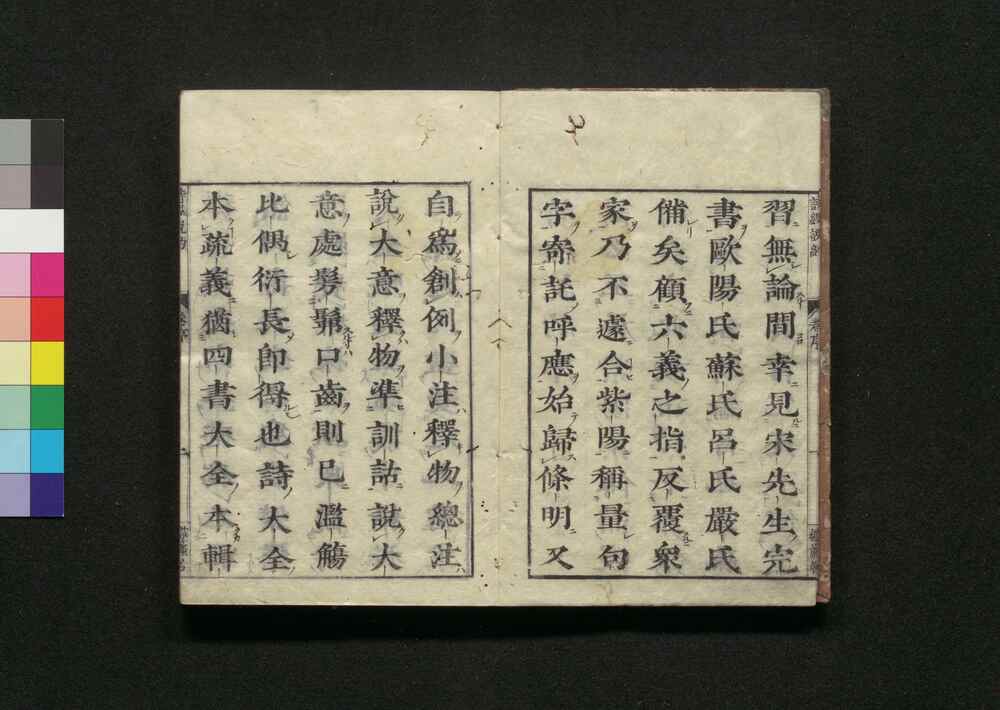 習無論間幸見宋先生完
書歐陽氏蘇氏呂氏嚴氏
備矣顧六義之指反覆衆
家乃不遠合紫陽稱量句
字寄託呼應始歸條明又
自為創例小注釋物總注
說大意釋物準訓詁說大
意處髣髴口齒則已濫觴
比偶衍長即得也詩大全
本疏義猶四書大全本輯